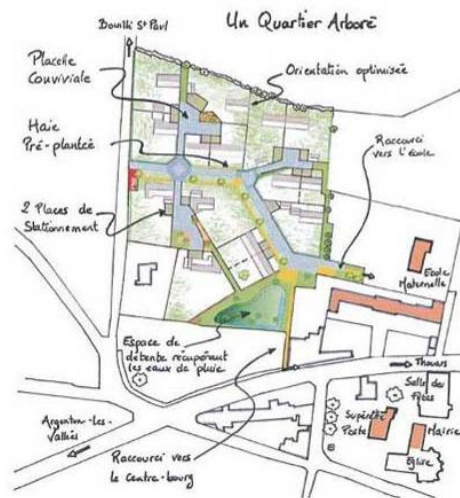 Bouillé St Paul
Un Quartier Arboré
Placette
Conviviale
Orientation optimisée
Haie
Pré-plantée
Raccourci
vers l'école
2 Places de
Stationnement
École
Maternelle
Espace de
détente récupérant
les eaux de pluie
Thouars
Salle des
Fêtes
Argenton-Les-
Vallées
Supérette
Poste
Mairie
Église
Raccourci vers
le centre-bourg